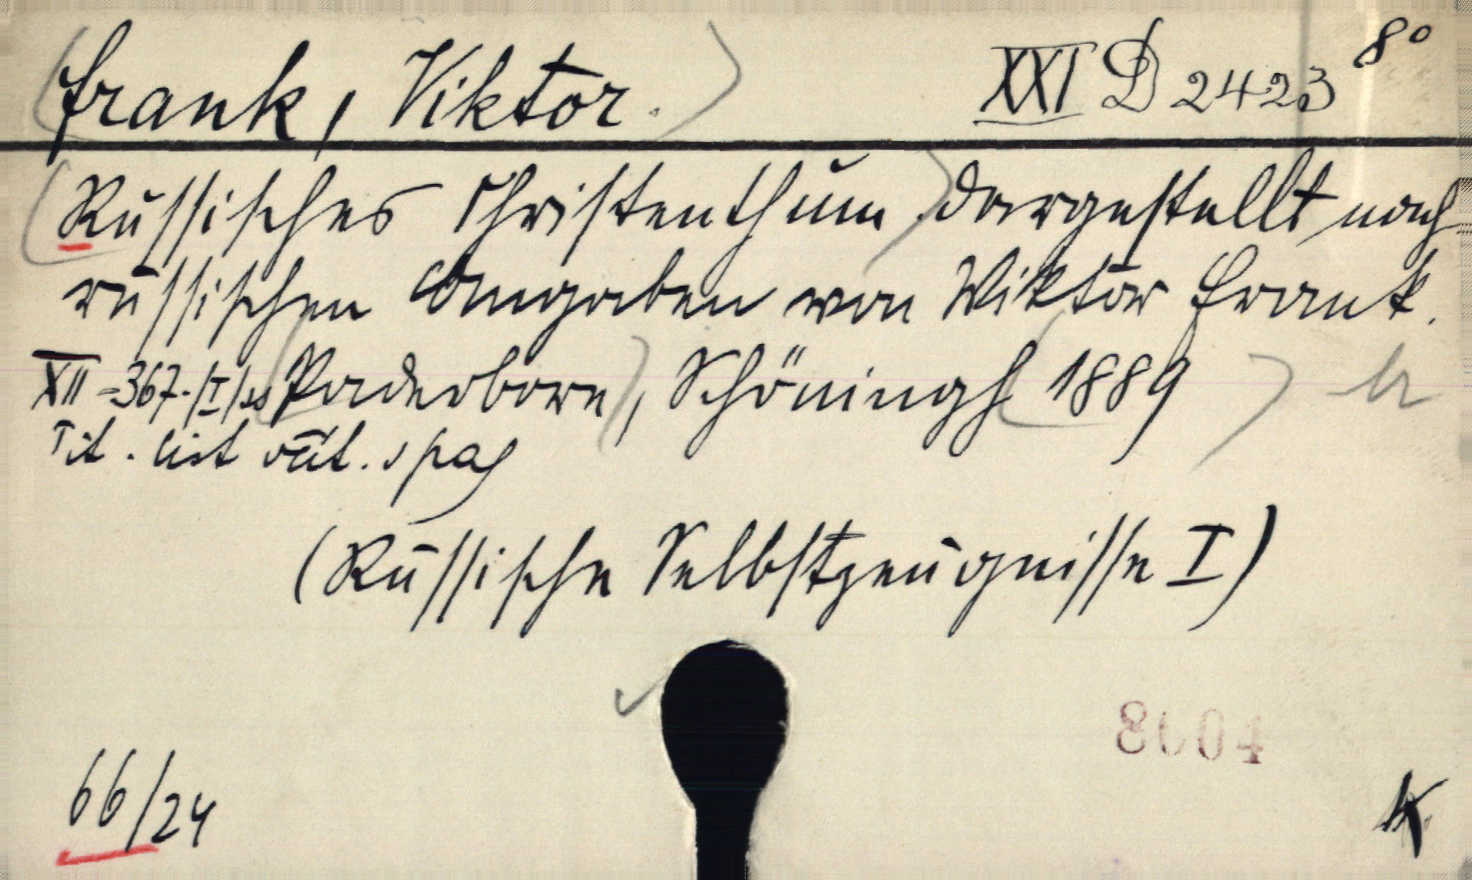 Frank, Viktor. XXI D 2423 8°
(Russisches Christenthum) dargestellt nach
russischen Angaben von Viktor Frank.
XII - 367 · (I) (Paderborn), Schöningh (1889)
Tit. list rčit. pag
(Russische Selbstzeugnisse I)
66/24
K